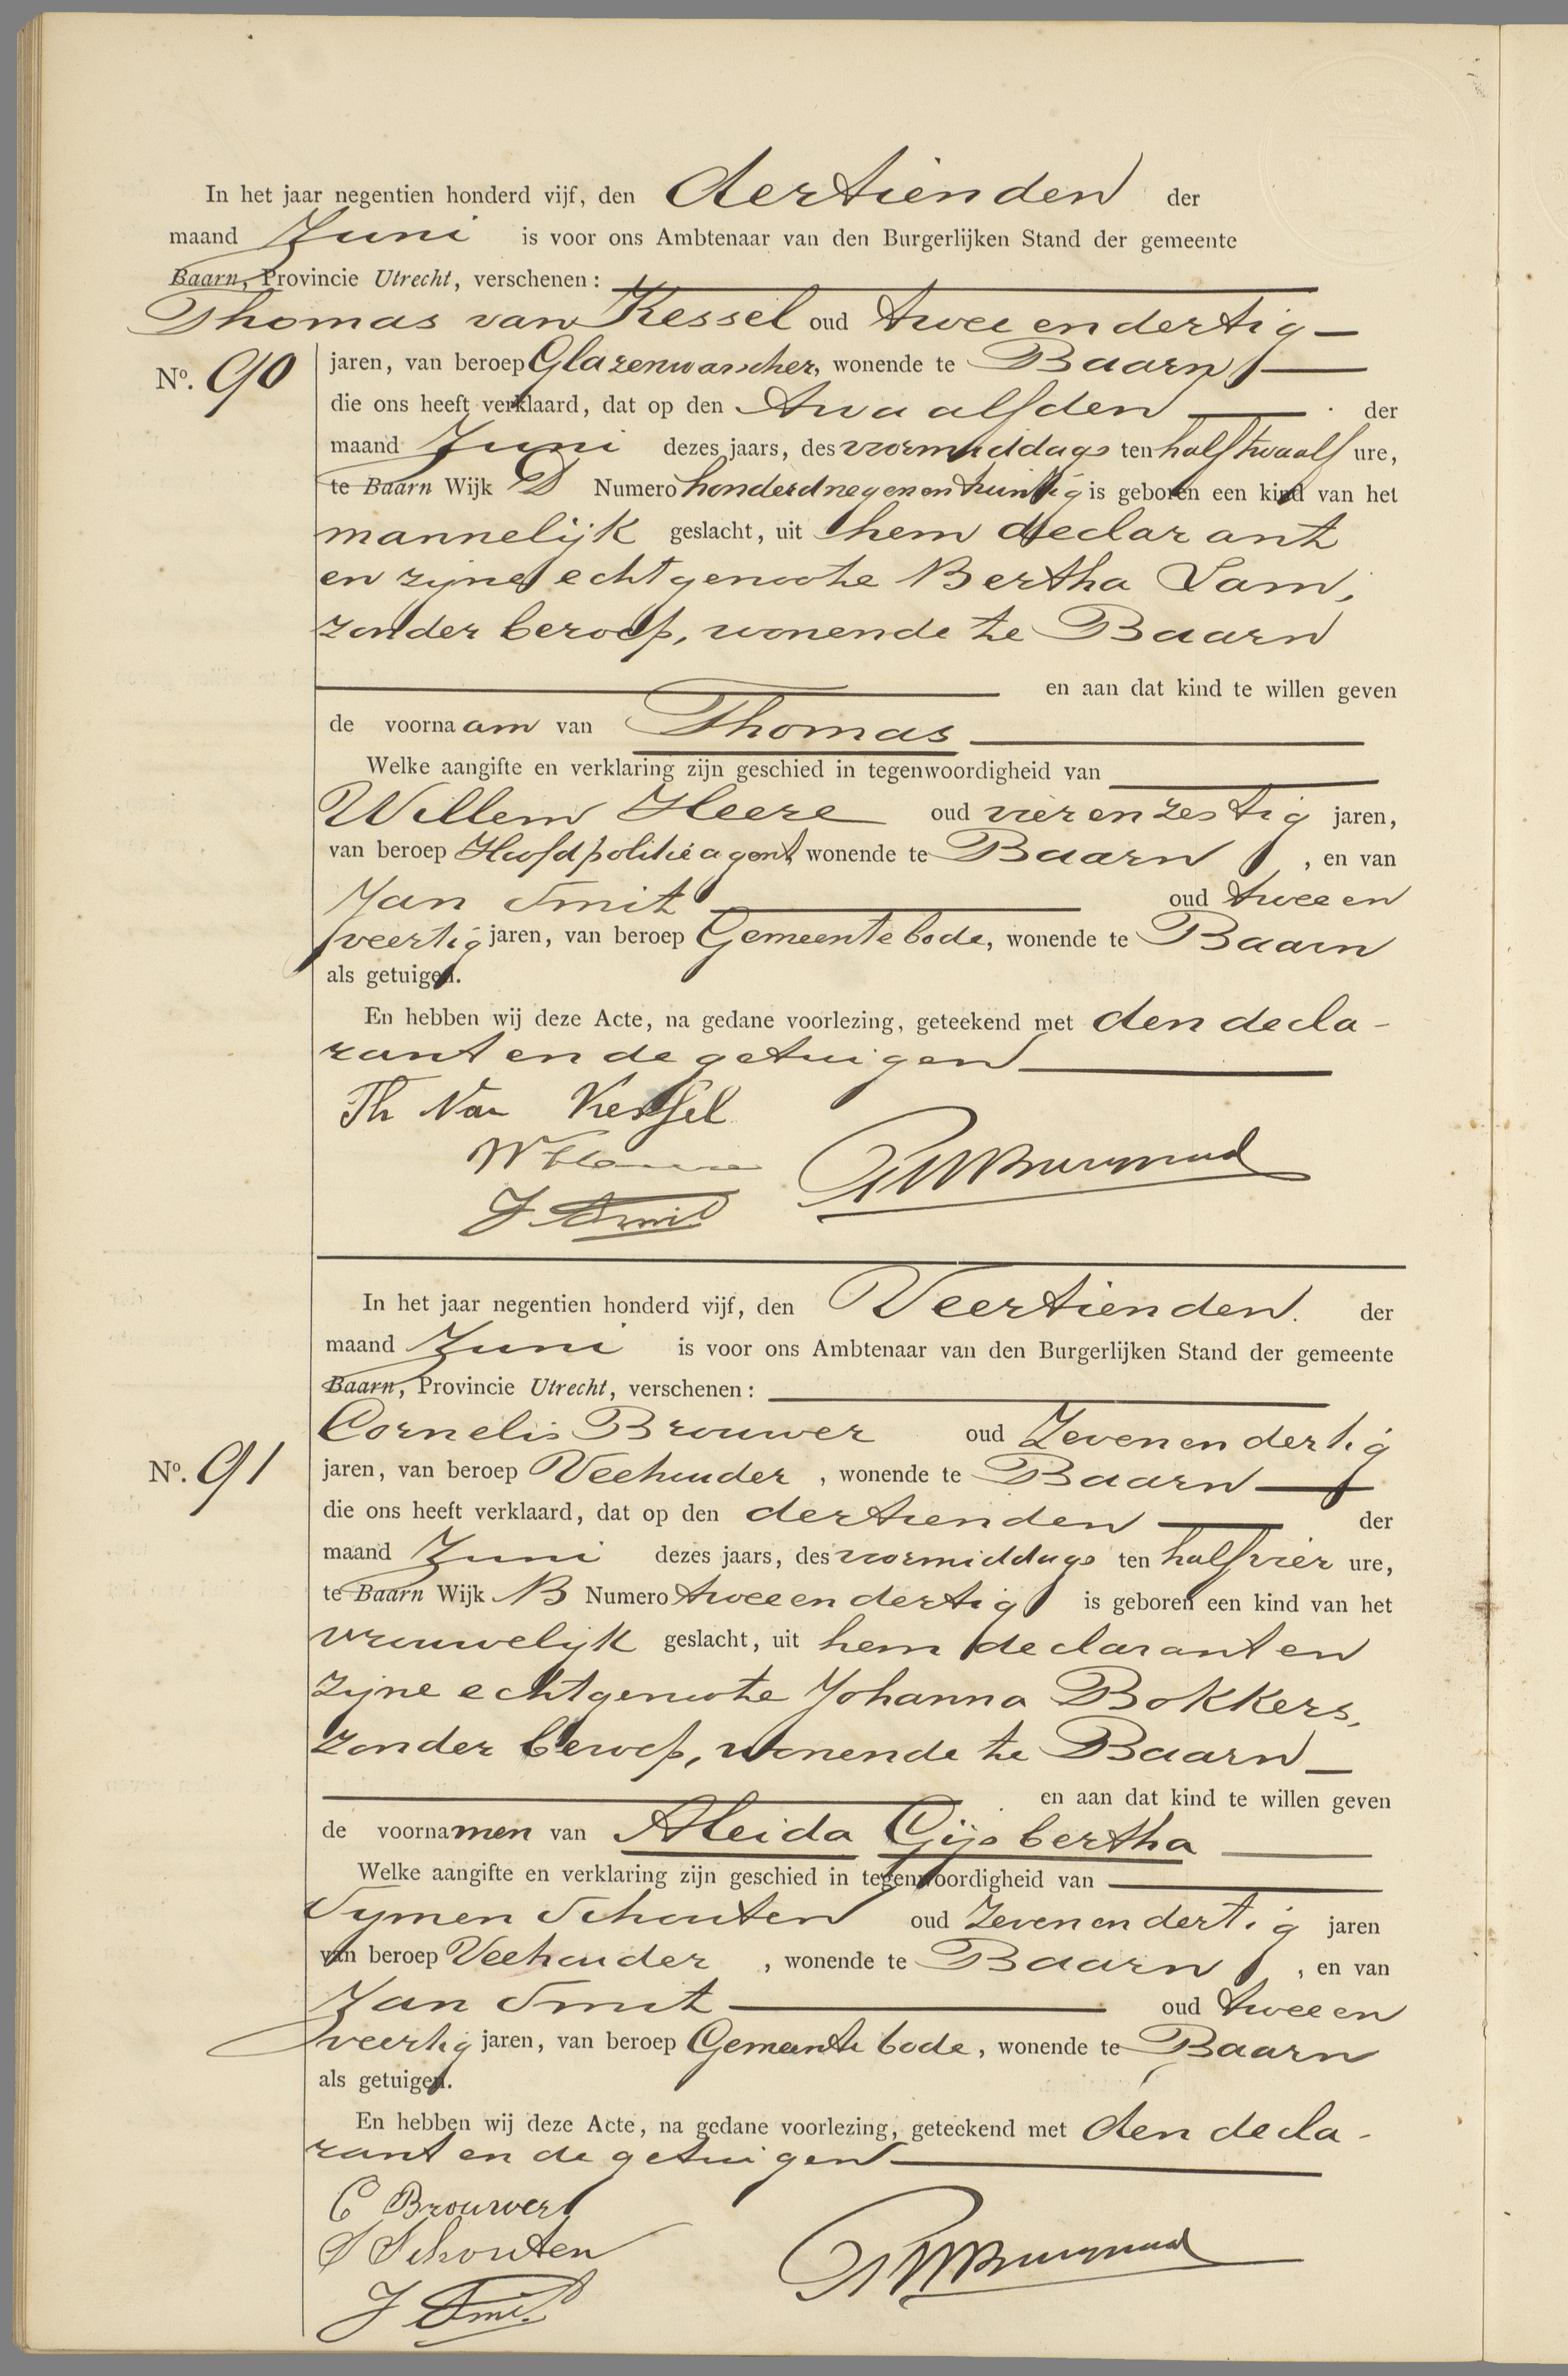 In het jaar negentien honderd vijf, den dertienden der
maand Juni is voor ons Ambtenaar van den Burgerlijken Stand der gemeente
Baarn, Provincie Utrecht, verschenen:
Thomas van Kessel oud twee en dertig
No. 90 jaren, van beroep Glazenwasscher, wonende te Baarn
die ons heeft verklaard, dat op den twaalfden der
maand Juni dezes jaars, des voormiddags ten half twaalf ure,
te Baarn Wijk D Numero honderdnegenentwintig is geboren een kind van het
mannelijk geslacht, uit hem declarant
en zijne echtgenoote Bertha Lam,
zonder beroep, wonende te Baarn
en aan dat kind te willen geven
de voornaam van Thomas
Welke aangifte en verklaring zijn geschied in tegenwoordigheid van
Willem Heere oud vierenzestig jaren,
van beroep Hoofdpolitieagent wonende te Baarn, en van
Jan Smit oud twee en
veertig jaren, van beroep Gemeentebode, wonende te Baarn
als getuigen.
En hebben wij deze Acte, na gedane voorlezing, geteekend met den decla-
rant en de getuigen
Th Van Kessel
J Smit
In het jaar negentien honderd vijf, den Veertienden. der
maand Juni is voor ons Ambtenaar van den Burgerlijken Stand der gemeente
Baarn, Provincie Utrecht, verschenen:
Cornelis Brouwer oud Zevenendertig
No. 91 jaren, van beroep Veehouder, wonende te Baarn
die ons heeft verklaard, dat op den dertienden der
maand Juni dezes jaars, des voormiddags ten half vier ure,
te Baarn Wijk B Numero tweeendertig is geboren een kind van het
vrouwelijk geslacht, uit hem declarant en
zijne echtgenoote Johanna Bokkers,
zonder beroep, wonende te Baarn
en aan dat kind te willen geven
de voornamen van Aleida Gijsbertha
Welke aangifte en verklaring zijn geschied in tegenwoordigheid van
Symen Schouten oud Zevenendertig jaren
van beroep Veehouder, wonende te Baarn, en van
Jan Smit oud twee en
veertig jaren, van beroep Gemeentebode, wonende te Baarn
als getuigen.
En hebben wij deze Acte, na gedane voorlezing, geteekend met den decla-
rant en de getuigen
C Brouwer
S Schouten
J Smit